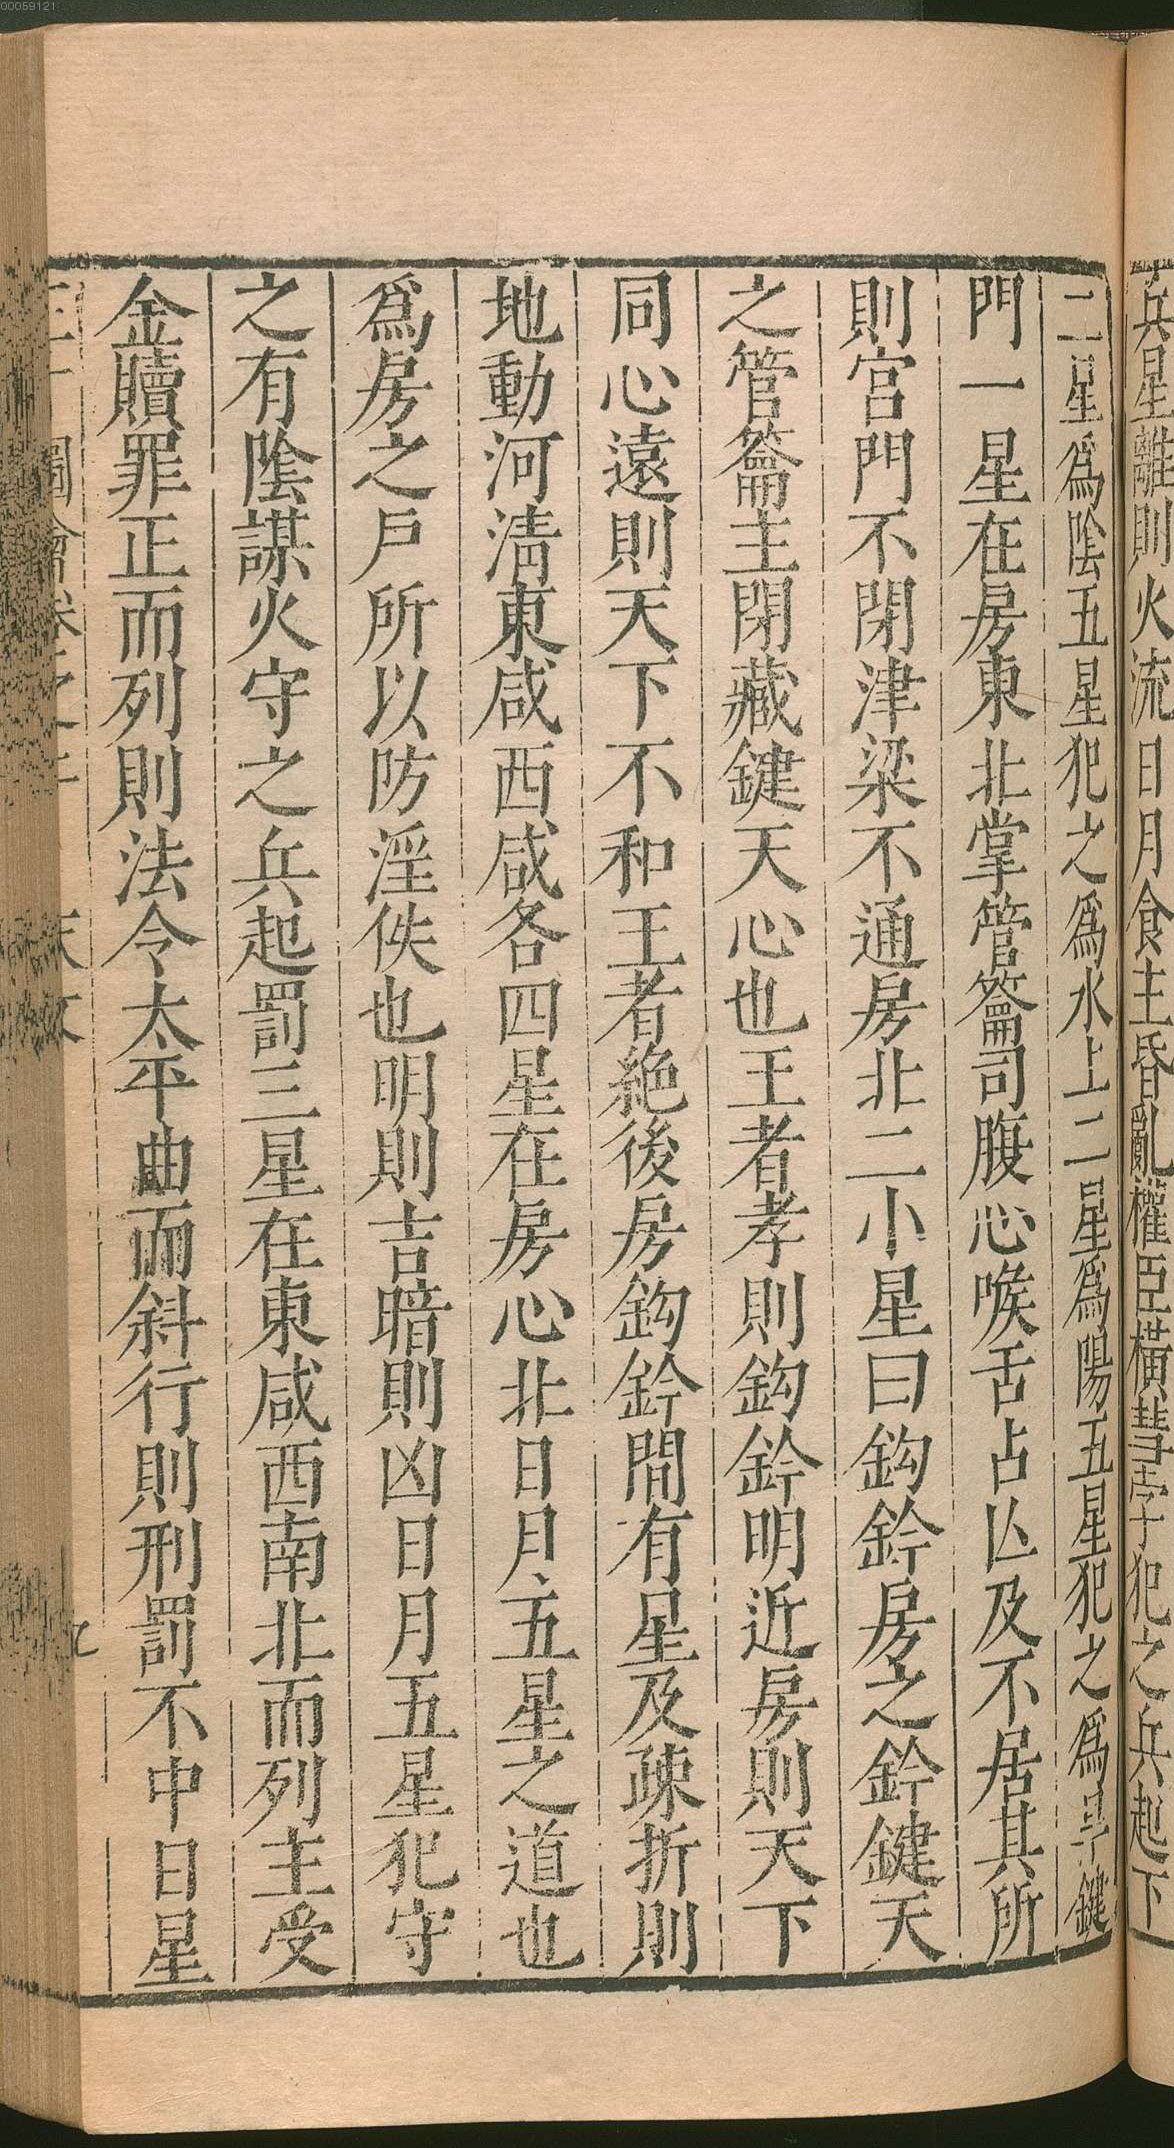 00059121
兵星離則火流日月食主昏亂權臣橫彗孛犯之兵起下
二星爲陰五星犯之爲水上二星爲陽五星犯之爲旱鍵
門一星在房東北掌管籥司腹心喉舌占亾及不居其所
則宮門不閉津梁不通房北二小星曰鈎鈐房之鈐鍵天
之管籥主閉藏鍵天心也王者孝則鈎鈐明近房則天下
同心遠則天下不和王者絶後房鈎鈐間有星及疎折則
地動河淸東咸西咸各四星在房心北日月五星之道也
爲房之戶所以防淫佚也明則吉暗則凶日月五星犯守
之有陰謀火守之兵起罰三星在東咸西南北而列主受
金贖罪正而列則法令太平曲而斜行則刑罰不中日星